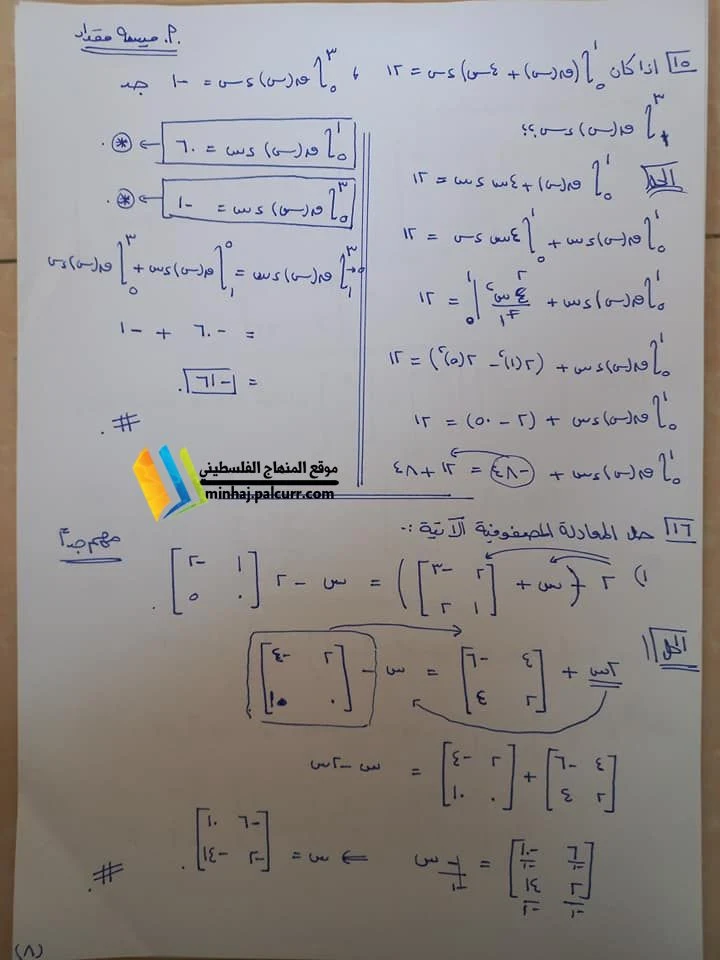 م. ميسرة مقداد
١٥ اذا كان ∫₀¹ (ق(س) + ٤س) ءس = ١٢ ، ∫₀³ ق(س) ءس = -١ جد
∫₁³ ق(س) ءس ؟؟
الحل ∫₀¹ ق(س) + ٤س ءس = ١٢
∫₀¹ ق(س) ءس + ∫₀¹ ٤س ءس = ١٢
∫₀¹ ق(س) ءس + ٤س²/٢ |₀¹ = ١٢
∫₀¹ ق(س) ءس + (٢(١)² - ٢(٥)²) = ١٢
∫₀¹ ق(س) ءس + (٢ - ٥٠) = ١٢
∫₀¹ ق(س) ءس + -٤٨ = ١٢ + ٤٨
∫₀¹ ق(س) ءس = ٦٠ ← *
∫₀³ ق(س) ءس = -١ ← *
∫₁³ ق(س) ءس = ∫₁⁰ ق(س) ءس + ∫₀³ ق(س) ءس
= -٦٠ + -١
= -٦١
#
موقع المنهاج الفلسطيني
minhaj.palcurr.com
١٦ حل المعادلة المصفوفية الآتية :-
مهم جداً
١) ٢ (س + [٢ -٣ ; ١ ٢]) = س - ٢ [١ -٢ ; ٠ ٥]
الحل ١
٢س + [٤ -٦ ; ٢ ٤] = س - [٢ -٤ ; ٠ ١٠]
[٤ -٦ ; ٢ ٤] + [٢ -٤ ; ٠ ١٠] = س - ٢س
[٦/-١ -١٠/-١ ; ٢/-١ ١٤/-١] = -١/-١ س ⇐ س = [-٦ ١٠ ; -٢ -١٤]
#
(٨)